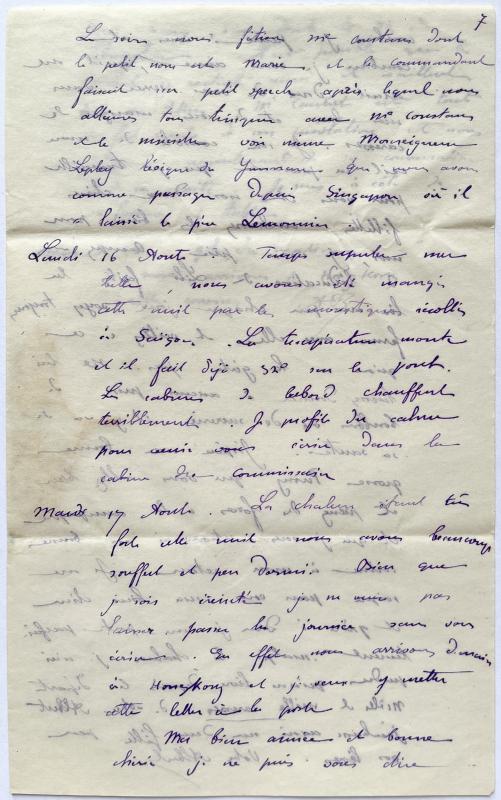 7
Le soir nous fêtions Mme Constans dont
le petit nom est Marie, et le commandant
faisait son petit speech après lequel nous
allâmes tous trinquer avec Mme Constans
et le ministre voir même Monseigneur
évêque du Yunnan que nous avons
comme passager depuis Singapour où il
a laissé le père Lemonnier.
Lundi 16 Août. Temps superbe mer
belle, nous avons été mangés
cette nuit par les moustiques récoltés
à Saïgon. La température monte
et il fait déjà 32° sur le pont.
Les cabines de bebord chauffent
terriblement. Je profite du calme
pour venir vous écrire dans la
cabine du commissaire
Mardi 17 Août. La chaleur étant très
forte cette nuit nous avons beaucoup
souffert et peu dormi. Bien que
je sois éreinté je ne veux pas
laisser passer la journée sans vous
écrire. En effet nous arrivons demain
à Hongkong et je veux y mettre
cette lettre à la poste
Ma bien aimée et bonne
chérie je ne puis vous dire